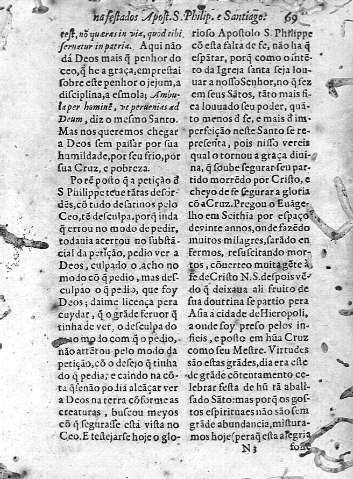 na festados Apost. S. Philip. e Santiago. 69
est, nõ quæras in via, quod tibi
seruetur in patria. Aqui não
dá Deos mais q̃ penhor do
ceo, q̃ he a graça, emprestai
sobre este penhor o jejum, a
disciplina, a esmola; Ambu-
la per hominẽ, vt peruenias ad
Deum, diz o mesmo Santo.
Mas nos queremos chegar
a Deos sem passar por sua
humildade, por seu frio, por
sua Cruz, e pobreza.
Porẽ posto q̃ a petição d̃
S Philippe teue tãtas desor-
dẽs, cõ tudo desatinos pelo
Ceo, tẽ desculpa, porq̃ inda
q̃ errou no modo de pedir,
todauia acertou no substã-
cial da petição, pedio ver a
Deos, culpado o acho no
modo cõ q̃ pedio, mas des-
culpaõ o q̃ pedio, que foy
Deus; daime licença pera
cuydar, q̃ o grãde feruor q̃
tinha de ver, o desculpa do
mao modo com q̃ o pedio,
não attẽtou pelo modo da
petiçaõ, cõ o desejo q̃ tinha
do q̃ pedia; e caindo na cõ-
ta q̃ senão podia alcãçar ver
a Deos na terra cõforme as
creaturas, buscou meyos
cõ q̃ segurasse está vista no
Ceo. E testejarse hoje o glo-
rioso Apostolo S. Philippe
cõ esta falta de fe, não ha q̃
espãtar, porq̃ como o intẽ-
to da Igreja santa seja lou-
uar a nosso Senhor, no q̃ fez
em seus Sãtos, tãto mais fi-
ca louuado seu poder, quã-
to menos d̃ fe, e mais d̃ im-
perfeiçáo neste Santo se re-
presenta, pois nisso vereis
qual o tornou a graça diui-
na, q̃ soube segurar seu par-
tido morrẽdo por Christo, e
cheyo de fe segurar a gloria
cõ a Cruz. Pregou o Euãge-
lho em Scithia por espaço
de vinte annos, onde fazẽdo
muitos milagres, sarãdo en
fermos, resuscitando mor-
tos, cõuerteo muita gẽte á
fe de Christo N. S. despois vẽ-
do q̃ deixaua ali fruito de
sua doutrina se partio pera
Asia a cidade de Hieropoli,
a onde foy preso pelos in-
fieis, e posto em hũa Cruz
como seu Mestre. Virtudes
saõ estas grãdes, dia era este
de grãde cõtentamento ce
lebrar festa de hũ tã abali-
sado Sãto: mas porq̃ os gos-
tos espirituaes não são sem
grãde abundancia, mistura-
mos hoje (peraq̃ esta alegria
N 3
fosse